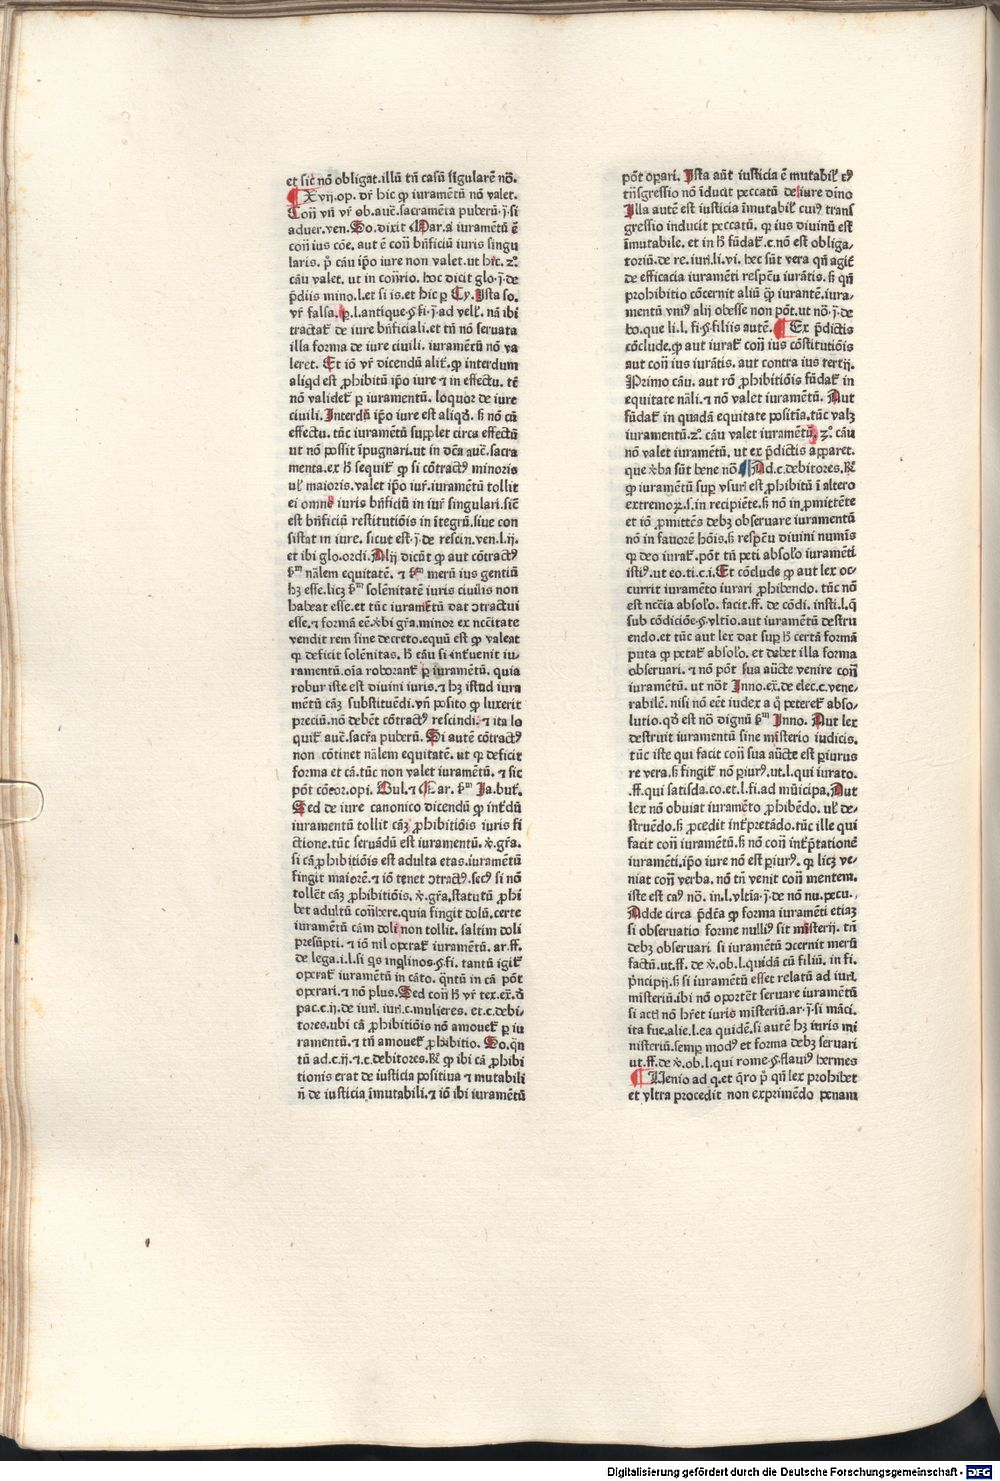 et sic̄ nō obligat.illū tn̄ casū singularē nō.
¶ Xvij.op. dr̄ hic ꝙ iuramētū nō valet.
Con̄ vn̄ vr̄ ob.auc̄.sacramēta puberū.j.si
aduer.ven.So.dixit Mar.ꝙ iuramētū ē
con̄ ius cōe. aut ē con̄ bn̄ficiū iuris singu
laris. p̄ cāu ip̄o iure non valet.ut hic. 2º
cāu valet. ut in con̄rio. hoc dicit glo.j.de
p̄diis mino.l.et si is.et hic ꝑ Cy.Ista so.
vr̄ falsa.ꝑ.l.antique.§.fi.j.ad vell̄. nā ibi
tractat̄ de iure bn̄ficiali.et tn̄ nō seruata
illa forma de iure ciuili. iuramētū nō va
leret. Et iō vr̄ dicendū alit̄.ꝙ interdum
aliqd est ꝓhibitū ip̄o iure ⁊ in effectu. tē
nō validet̄ ꝑ iuramentū. loquor de iure
ciuili. Interdū ip̄o iure est aliqd̄. s̄ nō cū
effectu. tūc iuramētū supplet circa effectū
ut nō possit īpugnari.ut in dc̄a auc̄.sacra
menta.ex h̄ sequit̄ ꝙ si cōtractꝰ minoris
ul̓ maioris.valet ip̄o iur̄.iuramētū tollit
ei omne iuris bn̄ficiū in iur̄ singulari.sic̄
est bn̄ficiū restitutiōis in ītegrū.siue con
sistat in iure. sicut est.j.de rescin.ven.l.ij.
et ibi glo.ordi.Alij dicūt ꝙ aut cōtractꝰ
s̄m nālem equitatē. ⁊ s̄m merū ius gentiū
hꝫ esse.licꝫ s̄m solēnitatē iuris ciuilis non
habeat esse.et tūc iuramētū dat ↄtractui
esse.⁊ formā eē.v̓bi gr̄a.minor ex nc̄citate
vendit rem sine decreto.equū est ꝙ valeat
qꝛ deficit solēnitas. h̄ cāu si int̄uenit iu-
ramentū.oīa roborant̄ ꝑ iuramētū. quia
robur iste est diuini iuris.⁊ hꝫ istud iura
mētū cāꝫ substituēdi.vn̄ posito ꝙ luxerit
preciū.nō debēt cōtractꝰ rescindi.⁊ ita lo
quit̄ auc̄.sacr̄a puberū. Si autē cōtractꝰ
non cōtinet nālem equitatē. ut qꝛ deficit
forma et cā.tūc non valet iuramētū. ⁊ sic
pōt cōcor.opi. Bul.⁊ Mar. s̄m Ja.but̄.
Sed de iure canonico dicendū ꝙ int̄dū
iuramentū tollit cāꝫ ꝓhibitiōis iuris fi
ctione.tūc seruādū est iuramentū. v̓.gr̄a.
si cā ꝓhibitiōis est adulta etas.iuramētū
fingit maiorē.⁊ iō tenet ↄtractꝰ.secꝰ si nō
tollēt cāꝫ ꝓhibitiōis. v̓.gr̄a.statutū ꝓhi
bet adultū con̄here.quia fingit dolū.certe
iuramētū cām doli non tollit. saltim doli
presūpti. ⁊ iō nil operat̄ iuramētū. ar.ff.
de lega.i.l.si qs inqlinos.§.fi. tantū igit̄
operat̄ iuramētū in cāto. qn̄tū in cā pōt
operari.⁊ nō plus.Sed con̄ h̄ vr̄ tex.ex.d̓
pac.c.ij.de iuri. iuri.c.mulieres. et.c.debi-
tores.ubi cā ꝓhibitiōis nō amouet̄ ꝑ iu
ramentū.⁊ tn̄ amouet̄ ꝓhibitio. So.qn̄
tū ad.c.ij.⁊.c.debitores.R̄ ꝙ ibi cā ꝓhibi
tionis erat de iusticia positiua ⁊ mutabili
n̄ de iusticia īmutabili.⁊ iō ibi iuramētū
pōt opari. Ista aūt iusticia ē mutabil̓ cꝰ
trn̄sgressio nō īducit peccatū de iure diuo
Illa autē est iusticia īmutabil̓ cuiꝰ trans
gressio inducit peccatū. qꝛ ius diuinū est
īmutabile. et in h̄ fūdat̄.c.nō est obliga-
toriū.de re.iuri.li.vi. hec sūt vera qn̄ agit̄
de efficacia iuramēti respc̄u iurātis. s̄ qn̄
prohibitio cōcernit aliū ꝙ iurantē.iura-
mentū vniꝰ alij obesse non pōt.ut nō.j.de
bo.que li.l. fi.§.filiis autē. ¶ Ex p̄dictis
cōclude.ꝙ aut iurat̄ con̄ ius cōstitutiōis
aut con̄ ius iurātis. aut contra ius tertij.
Primo cāu. aut rō ꝓhibitiōis fūdat̄ in
equitate nāli.⁊ nō valet iuramētū. Aut
fūdat̄ in quadā equitate positīa.tūc valꝫ
iuramentū.2º cāu valet iuramētū. 3º cāu
nō valet iuramētū, ut ex p̄dictis apparet.
que v̓ba sūt bene nō. Ad.c.debitores.R̄
ꝙ iuramētū suꝑ vsuri est ꝓhibitū ī altero
extremoꝝ.s.in recipiēte.s̄ nō in ꝓmittēte
et iō ꝓmittēs debꝫ obseruare iuramentū
nō in fauorē hōis.s̄ respc̄u diuini numīs
qꝛ deo iurat̄.pōt tn̄ peti absolꝰo iuramēti
istiꝰ.ut eo.ti.c.i.Et cōclude ꝙ aut lex oc-
currit iuramēto iurari ꝓhibendo. tūc nō
est nc̄cia absolꝰo. facit.ff. de cōdi. insti.l.q̄
sub cōdiciōe.§.vltīo.aut iuramētū destru
endo.et tūc aut lex dat suꝑ h̄ certā formā
puta ꝙ petat̄ absolꝰo. et debet illa forma
obseruari. ⁊ nō pōt sua auc̄te venire con̄
iuramētū. ut nōt Inno.ex̓.de elec.c.vene-
rabilē. nisi nō eēt iudex a q̄ peteret̄ abso-
lutio.qd̓ est nō dignū s̄m Inno. Aut lex
destruit iuramentū sine misterio iudicis.
tūc iste qui facit con̄ sua auc̄te est ꝑiurus
re vera.s̄ fingit̄ nō ꝑiurꝰ.ut.l.qui iurato.
.ff.qui satisda.co.et.l.fi.ad mūicipa.Aut
lex nō obuiat iuramēto ꝓhibēdo. ul̓ de-
struēdo.s̄ ꝓcedit int̄pretādo.tūc ille qui
facit con̄ iuramētū.s̄ nō con̄ int̄ptationē
iuramēti.ip̄o iure nō est ꝑiurꝰ. qꝛ licꝫ ve-
niat con̄ verba. nō tn̄ venit con̄ mentem.
iste est casꝰ nō. in.l.vltīa.j.de nō nu.pecu.
Adde circa p̄dc̄a ꝙ forma iuramēti etiaꝫ
si obseruatio forme nulliꝰ sit misterij. tn̄
debꝫ obseruari si iuramētū ↄcernit merū
factū.ut.ff. de v̓.ob.l.quidā cū filiū. in fi.
pn̄cipij.s̄ si iuramētū esset relatū ad iuri
misteriū.ibi nō oportēt seruare iuramētū
si actꝰ nō hr̄et iuris misteriū.ar.j.si māci.
ita fue.alie.l.ea quidē.si autē hꝫ iuris mi
nisteriū.semꝑ modꝰ et forma debꝫ seruari
ut.ff.de v̓.ob.l.qui rome.§.flauiꝰ hermes
¶ Uenio ad q.et q̄ro p̄ qn̄ lex prohibet
et vltra procedit non exprimēdo penam
Digitalisierung gefördert durch die Deutsche Forschungsgemeinschaft - DFG